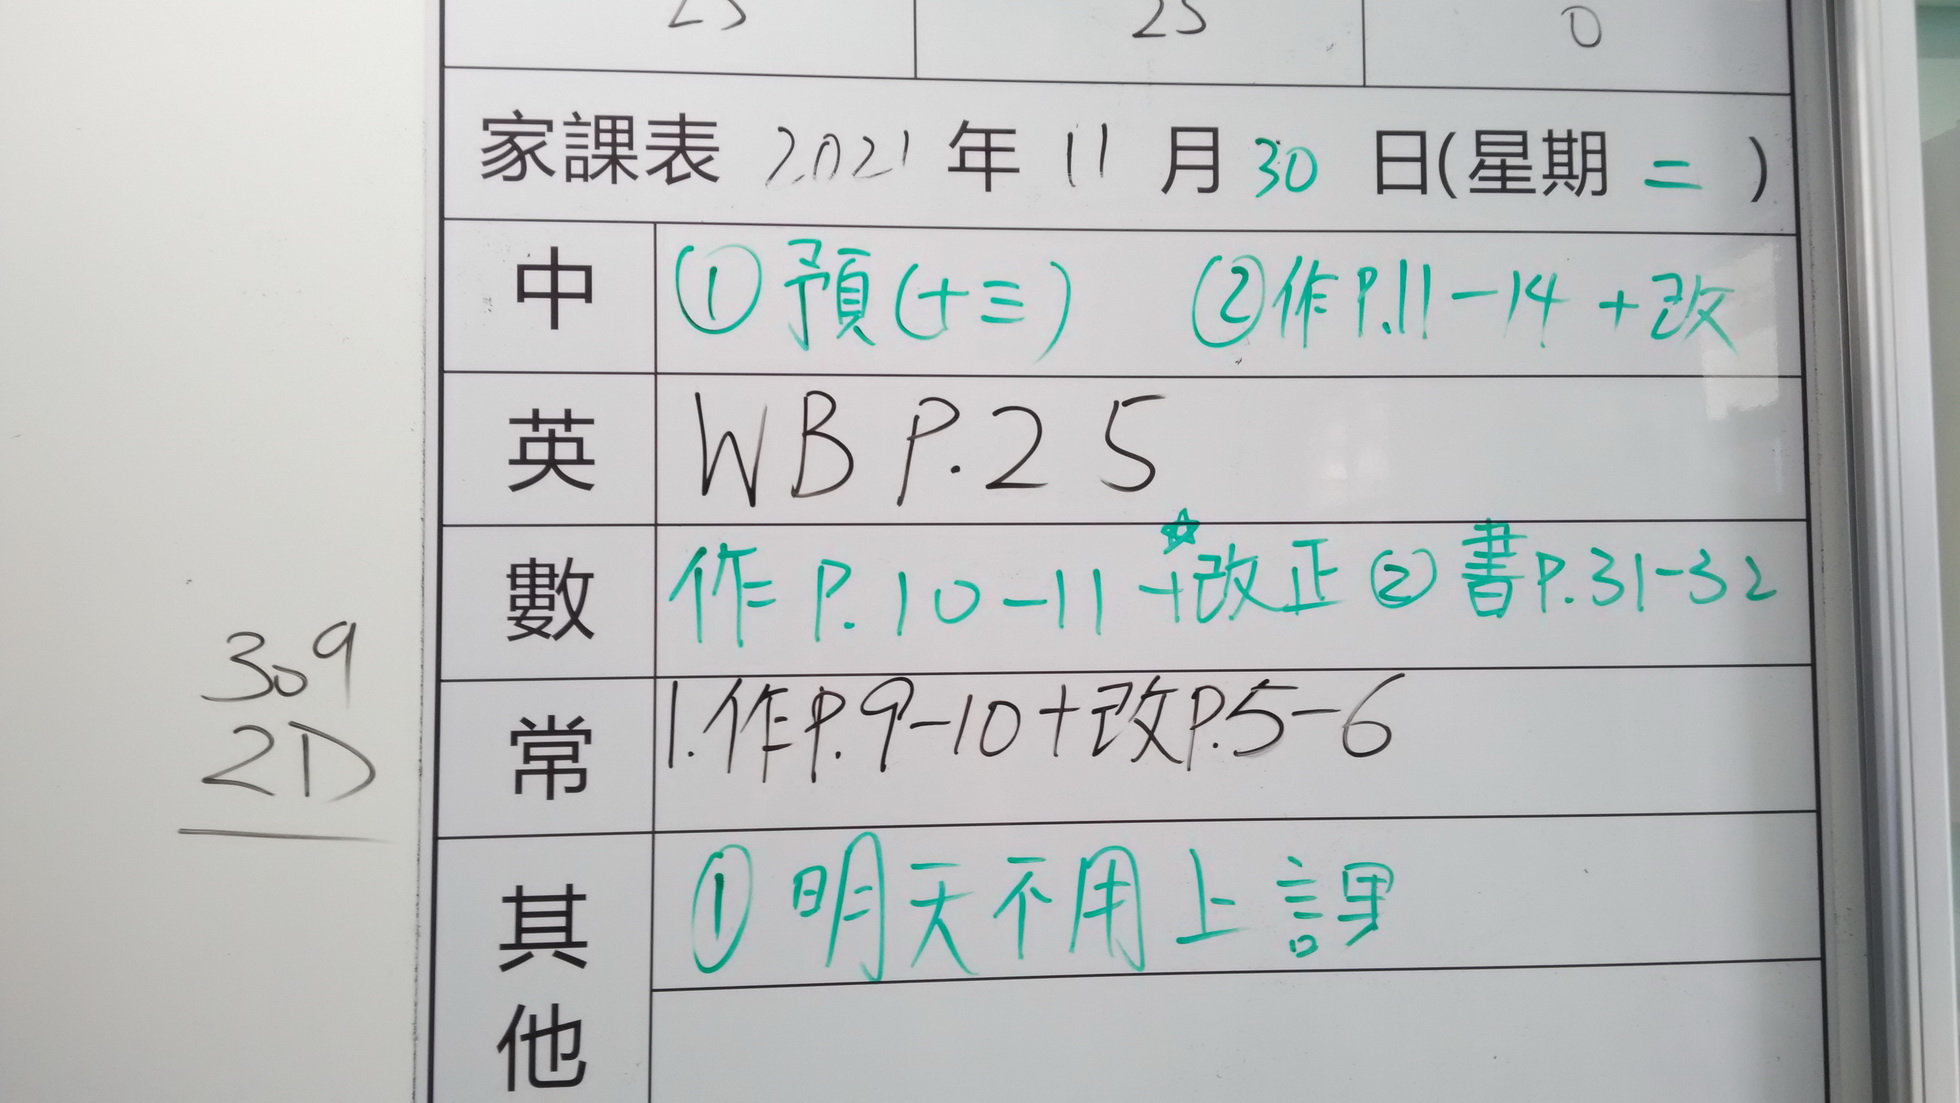 25 25 0
家課表 2021 年 11 月 30 日(星期 二 )
中 ①預(十三) ②作P.11-14 +改
英 WB P.25
數 作 P.10-11 +☆改正 ② 書P.31-32
309
常 1.作P.9-10+改P.5-6
2D
其他 ① 明天不用上課